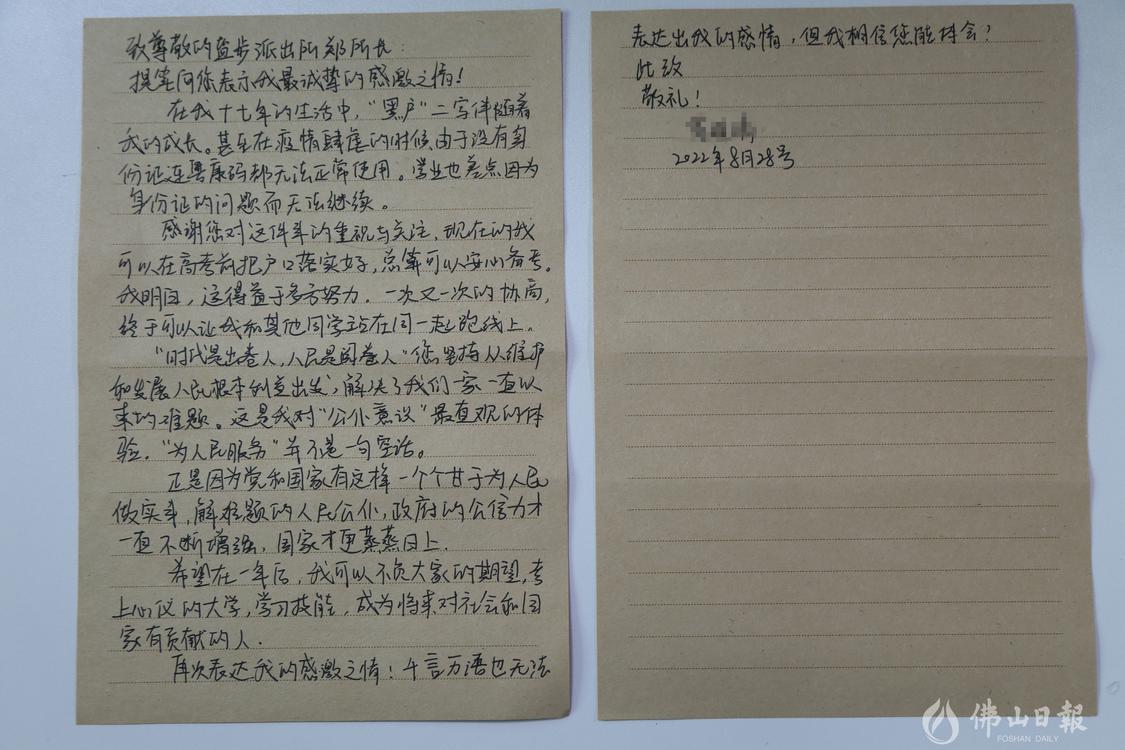 致尊敬的盐步派出所郑所长：
提笔向您表示我最诚挚的感激之情！
在我十七年的生活中，“黑户”二字伴随着
我的成长。甚至在疫情肆虐的时候，由于没有身
份证连粤康码都无法正常使用。学业也差点因为
身份证的问题而无法继续。
感谢您对这件事的重视与关注，现在的我
可以在高考前把户口落实好，总算可以安心备考。
我明白，这得益于多方努力，一次又一次的协商，
终于可以让我和其他同学站在同一起跑线上。
“时代是出卷人，人民是阅卷人”您坚持从维护
和发展人民根本利益出发，解决了我们一家一直以
来的难题。这是我对“公仆意识”最直观的体
验，“为人民服务”并不是一句空话。
正是因为党和国家有这样一个个甘于为人民
做实事，解难题的人民公仆，政府的公信力才
一直不断增强，国家才更蒸蒸日上．
希望在一年后，我可以不负大家的期望，考
上心仪的大学，学习技能，成为将来对社会和国
家有贡献的人．
再次表达我的感激之情！千言万语也无法
表达出我的感情，但我相信您能体会！
此致
敬礼！
2022年8月28号
佛山日報
FOSHAN DAILY